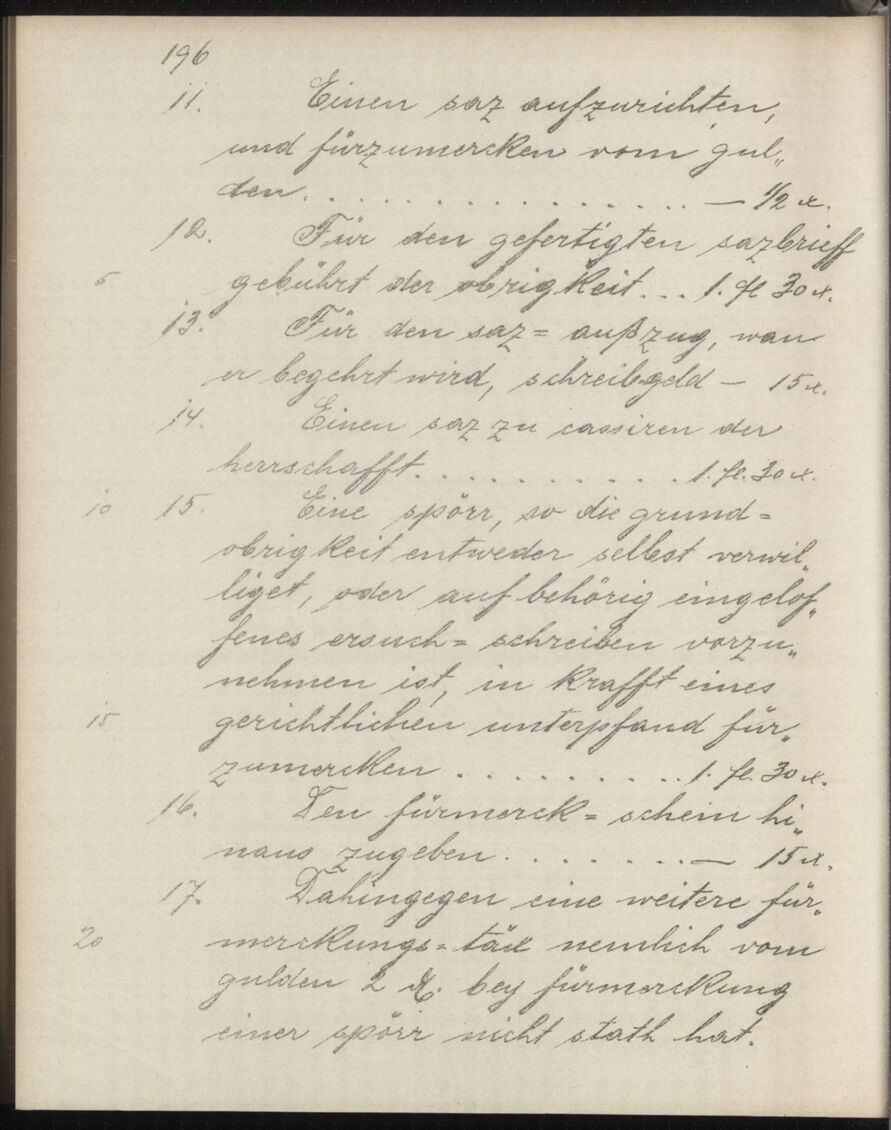 196
11. Einen saz aufzurichten,
und fürzumercken vom gul„
den. . . . . . . . . . . . . . . . . — ½ x.
12. Für den gefertigten sazbrieff
5 gebührt der obrigkeit . . . 1. fl 30 x.
13. Für den saz= außzug, wan
er begehrt wird, schreibgeld — 15 x.
14. Einen saz zu cassiren der
herrschafft. . . . . . . . . . . . 1. fl. 30 x.
10 15. Eine spörr, so die grund=
obrigkeit entweder selbst verwil„
liget, oder auf behörig eingelof„
fenes ersuch= schreiben vorzu„
nehmen ist, in krafft eines
15 gerichtlichen unterpfand für„
zumercken . . . . . . . . . . 1. fl. 30 x.
16. Den fürmerck= schein hi„
naus zugeben . . . . . . . . — 15 x.
17. Dahingegen eine weitere für„
20 merckungs= täx nemlich vom
gulden 2 X. bey fürmerckung
einer spörr nicht stath hat.